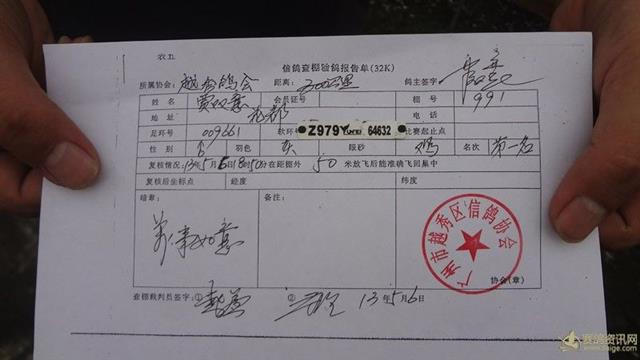 农五
信鸽查棚验鸽报告单(32K)
所属协会: 越秀鸽会 距离: 300公里 鸽主签字
姓名 贾双意 会员证号 棚号 991
地址 花都 电话
足环号 009661 软环 Z979 64632 比赛起止点
性别 羽色 灰 眼砂 鸡 名次 第一名
复核情况: 13年5月6日8时50分在距棚外 50 米放飞后能准确飞回巢中
复核后坐标点 经度 纬度
暗章: 备注:
万事如意
广州市越秀区信鸽协会
协会(章)
查棚裁判员签字: ① ② 13年5月6日
赛鸽资讯网
www.saige.com